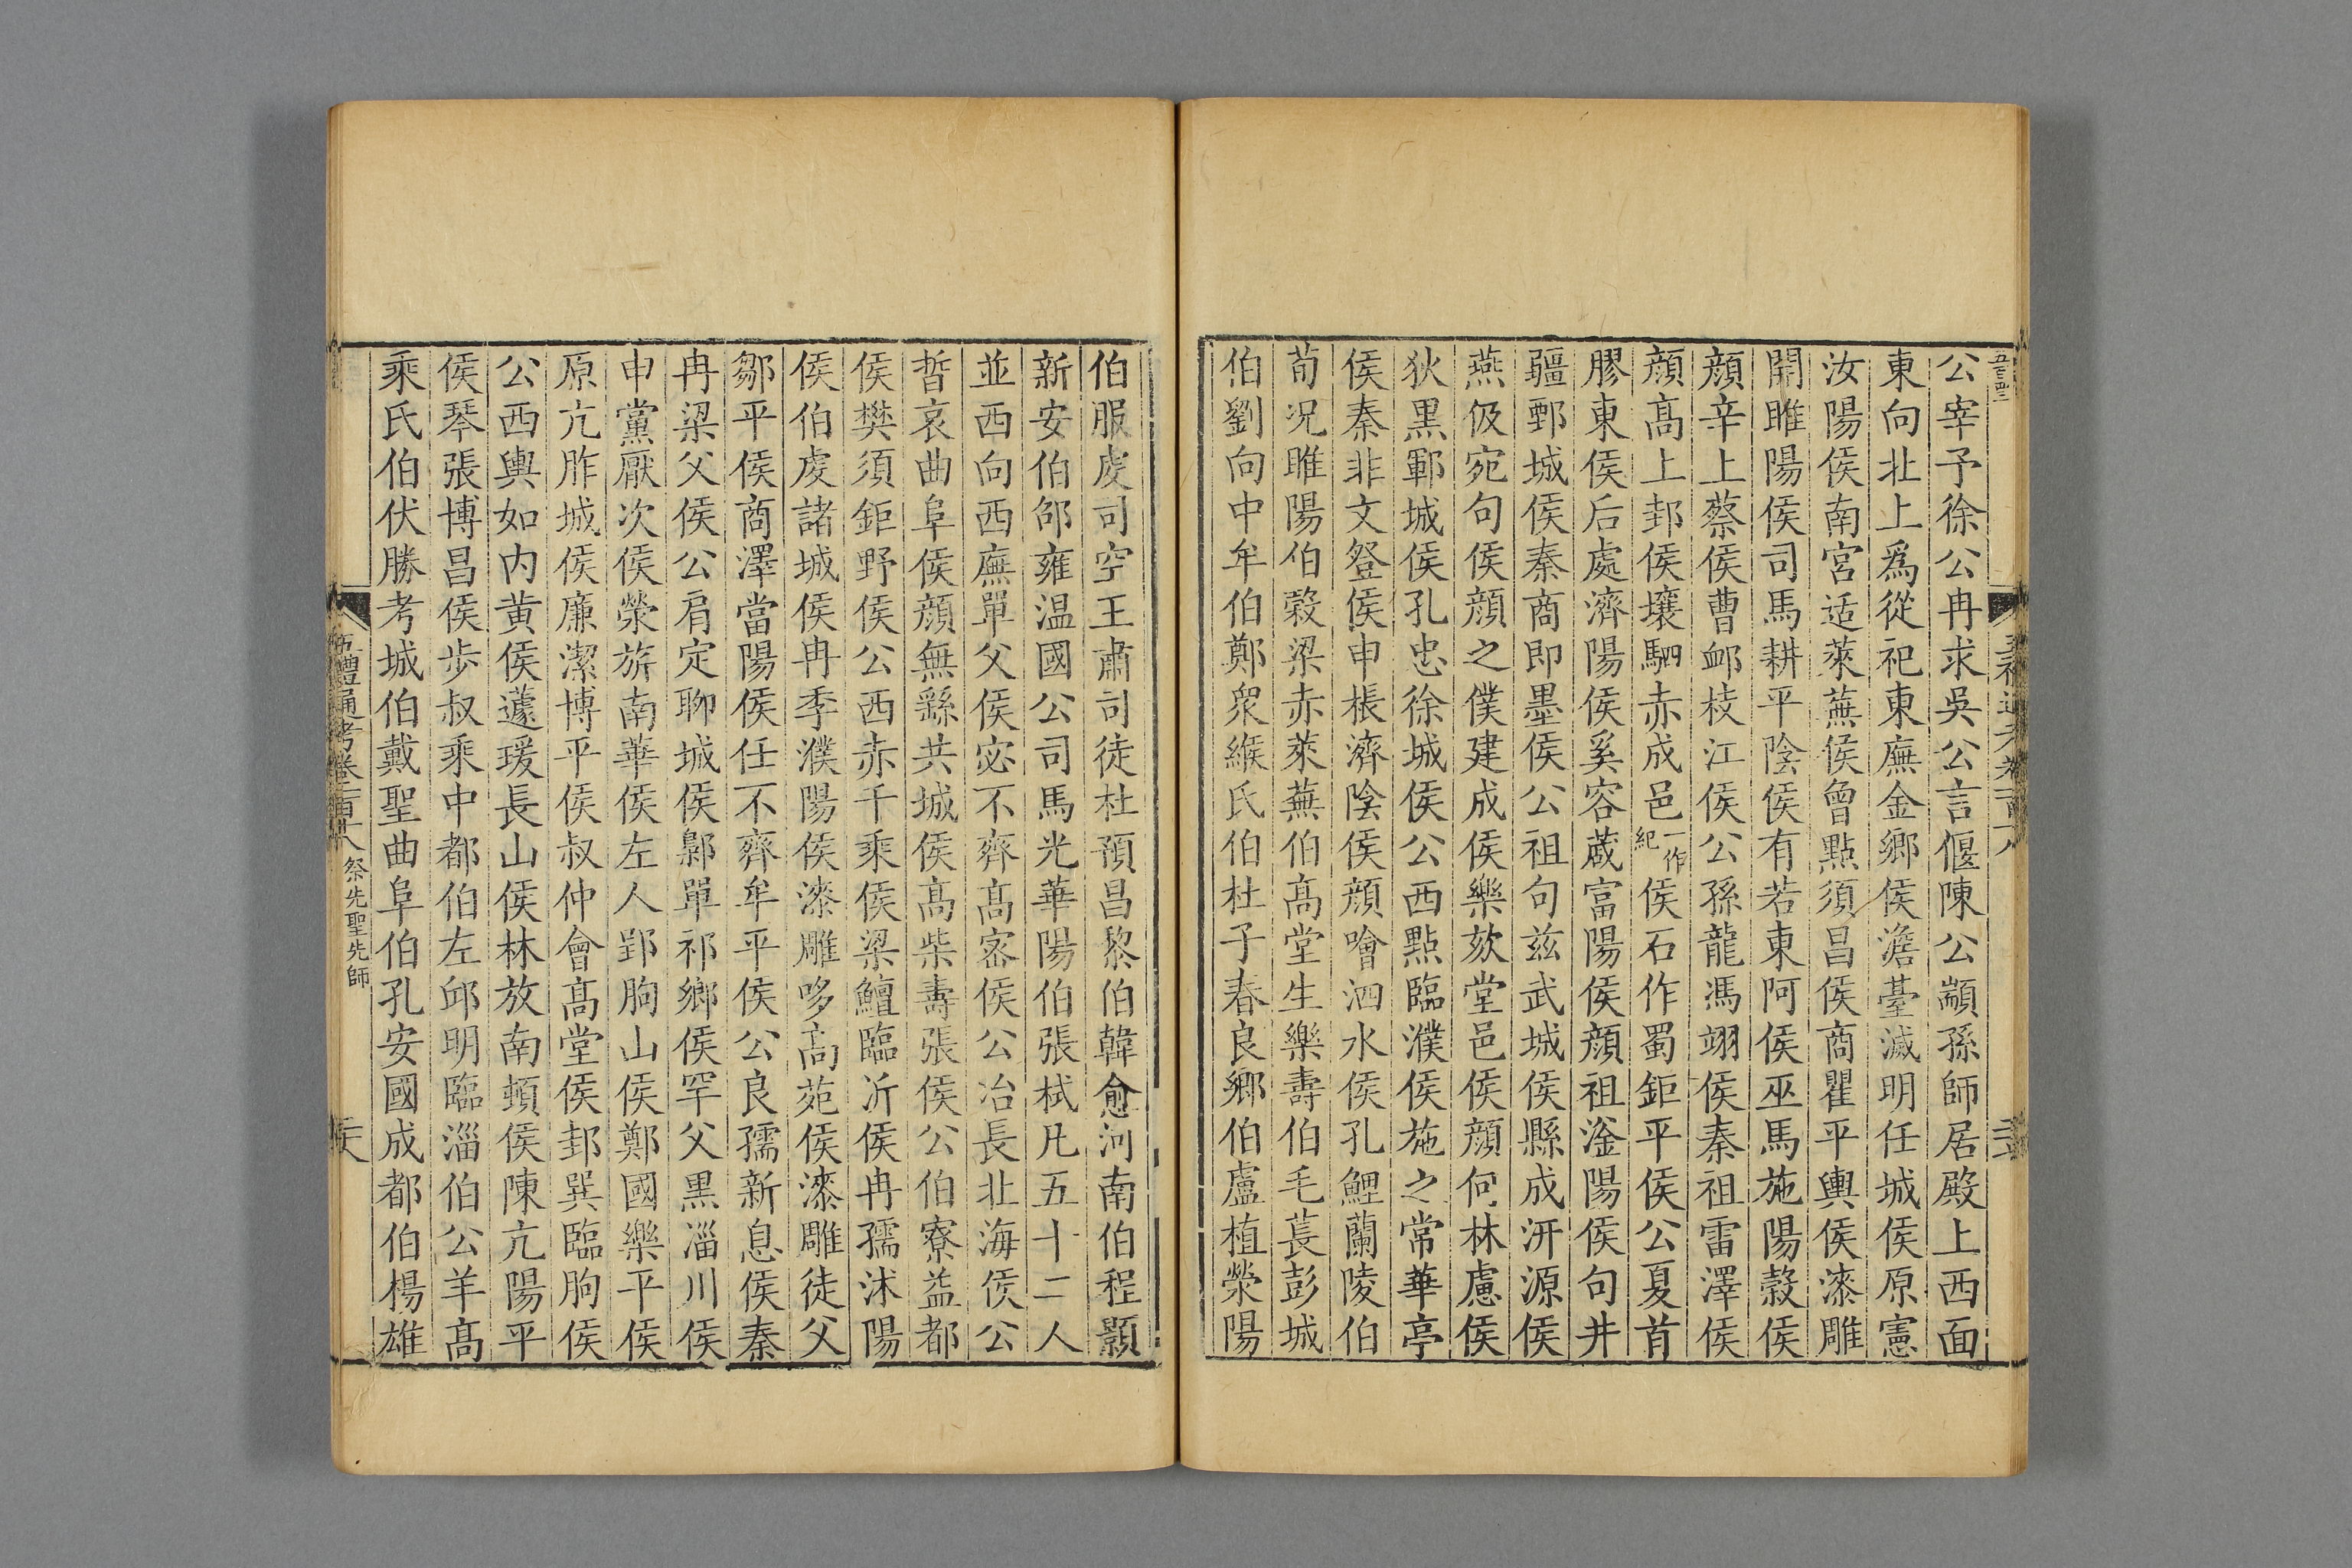 公宰予徐公冉求吳公言偃陳公顓孫師居殿上西面
東向北上爲從祀東廡金鄉侯澹臺滅明任城侯原憲
汝陽侯南宮适萊蕪侯曾點須昌侯商瞿平輿侯漆雕
開睢陽侯司馬耕平陰侯有若東阿侯巫馬施陽穀侯
顏辛上蔡侯曹卹枝江侯公孫龍馮翊侯秦祖雷澤侯
顏高上邽侯壤駟赤成邑一作紀侯石作蜀鉅平侯公夏首
膠東侯后處濟陽侯奚容蒧富陽侯顏祖滏陽侯句井
疆鄄城侯秦商即墨侯公祖句兹武城侯縣成汧源侯
燕伋宛句侯顏之僕建成侯樂欬堂邑侯顏何林慮侯
狄黒鄆城侯孔忠徐城侯公西點臨濮侯施之常華亭
侯秦非文登侯申棖濟陰侯顏噲泗水侯孔鯉蘭陵伯
荀况睢陽伯穀梁赤萊蕪伯高堂生樂壽伯毛萇彭城
伯劉向中牟伯鄭衆緱氏伯杜子春良鄉伯盧植滎陽
伯服虔司空王肅司徒杜預昌黎伯韓愈河南伯程顥
新安伯邵雍温國公司馬光華陽伯張栻凡五十二人
並西向西廡單父侯宓不齊高密侯公冶長北海侯公
晳哀曲阜侯顏無繇共城侯高柴壽張侯公伯寮益都
侯樊須鉅野侯公西赤千乘侯梁鱣臨沂侯冉孺沭陽
侯伯虔諸城侯冉季濮陽侯漆雕哆高苑侯漆雕徒父
鄒平侯商澤當陽侯任不齊牟平侯公良孺新息侯秦
冉梁父侯公肩定聊城侯鄡單祁鄉侯罕父黒淄川侯
申黨厭次侯滎旂南華侯左人郢朐山侯鄭國樂平侯
原亢胙城侯廉潔博平侯叔仲會高堂侯邽巽臨朐侯
公西輿如内黄侯蘧瑗長山侯林放南頓侯陳亢陽平
侯琴張博昌侯步叔乘中都伯左邱明臨淄伯公羊高
乘氏伯伏勝考城伯戴聖曲阜伯孔安國成都伯楊雄
祭先聖先師